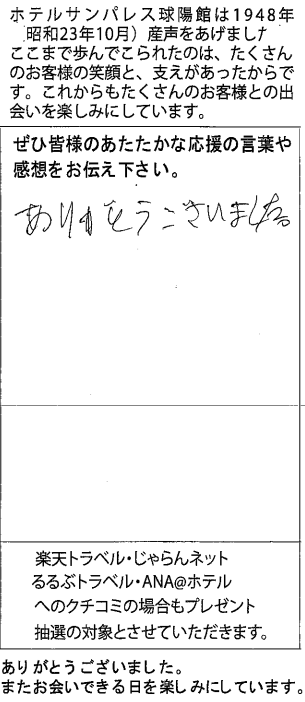 ホテルサンパレス球陽館は1948年
(昭和23年10月）産声をあげました
ここまで歩んでこられたのは、たくさん
のお客様の笑顔と、支えがあったからで
す。これからもたくさんのお客様との出
会いを楽しみにしています。
ぜひ皆様のあたたかな応援の言葉や
感想をお伝え下さい。
ありがとうございました
楽天トラベル・じゃらんネット
るるぶトラベル・ANA@ホテル
へのクチコミの場合もプレゼント
抽選の対象とさせていただきます。
ありがとうございました。
またお会いできる日を楽しみにしています。